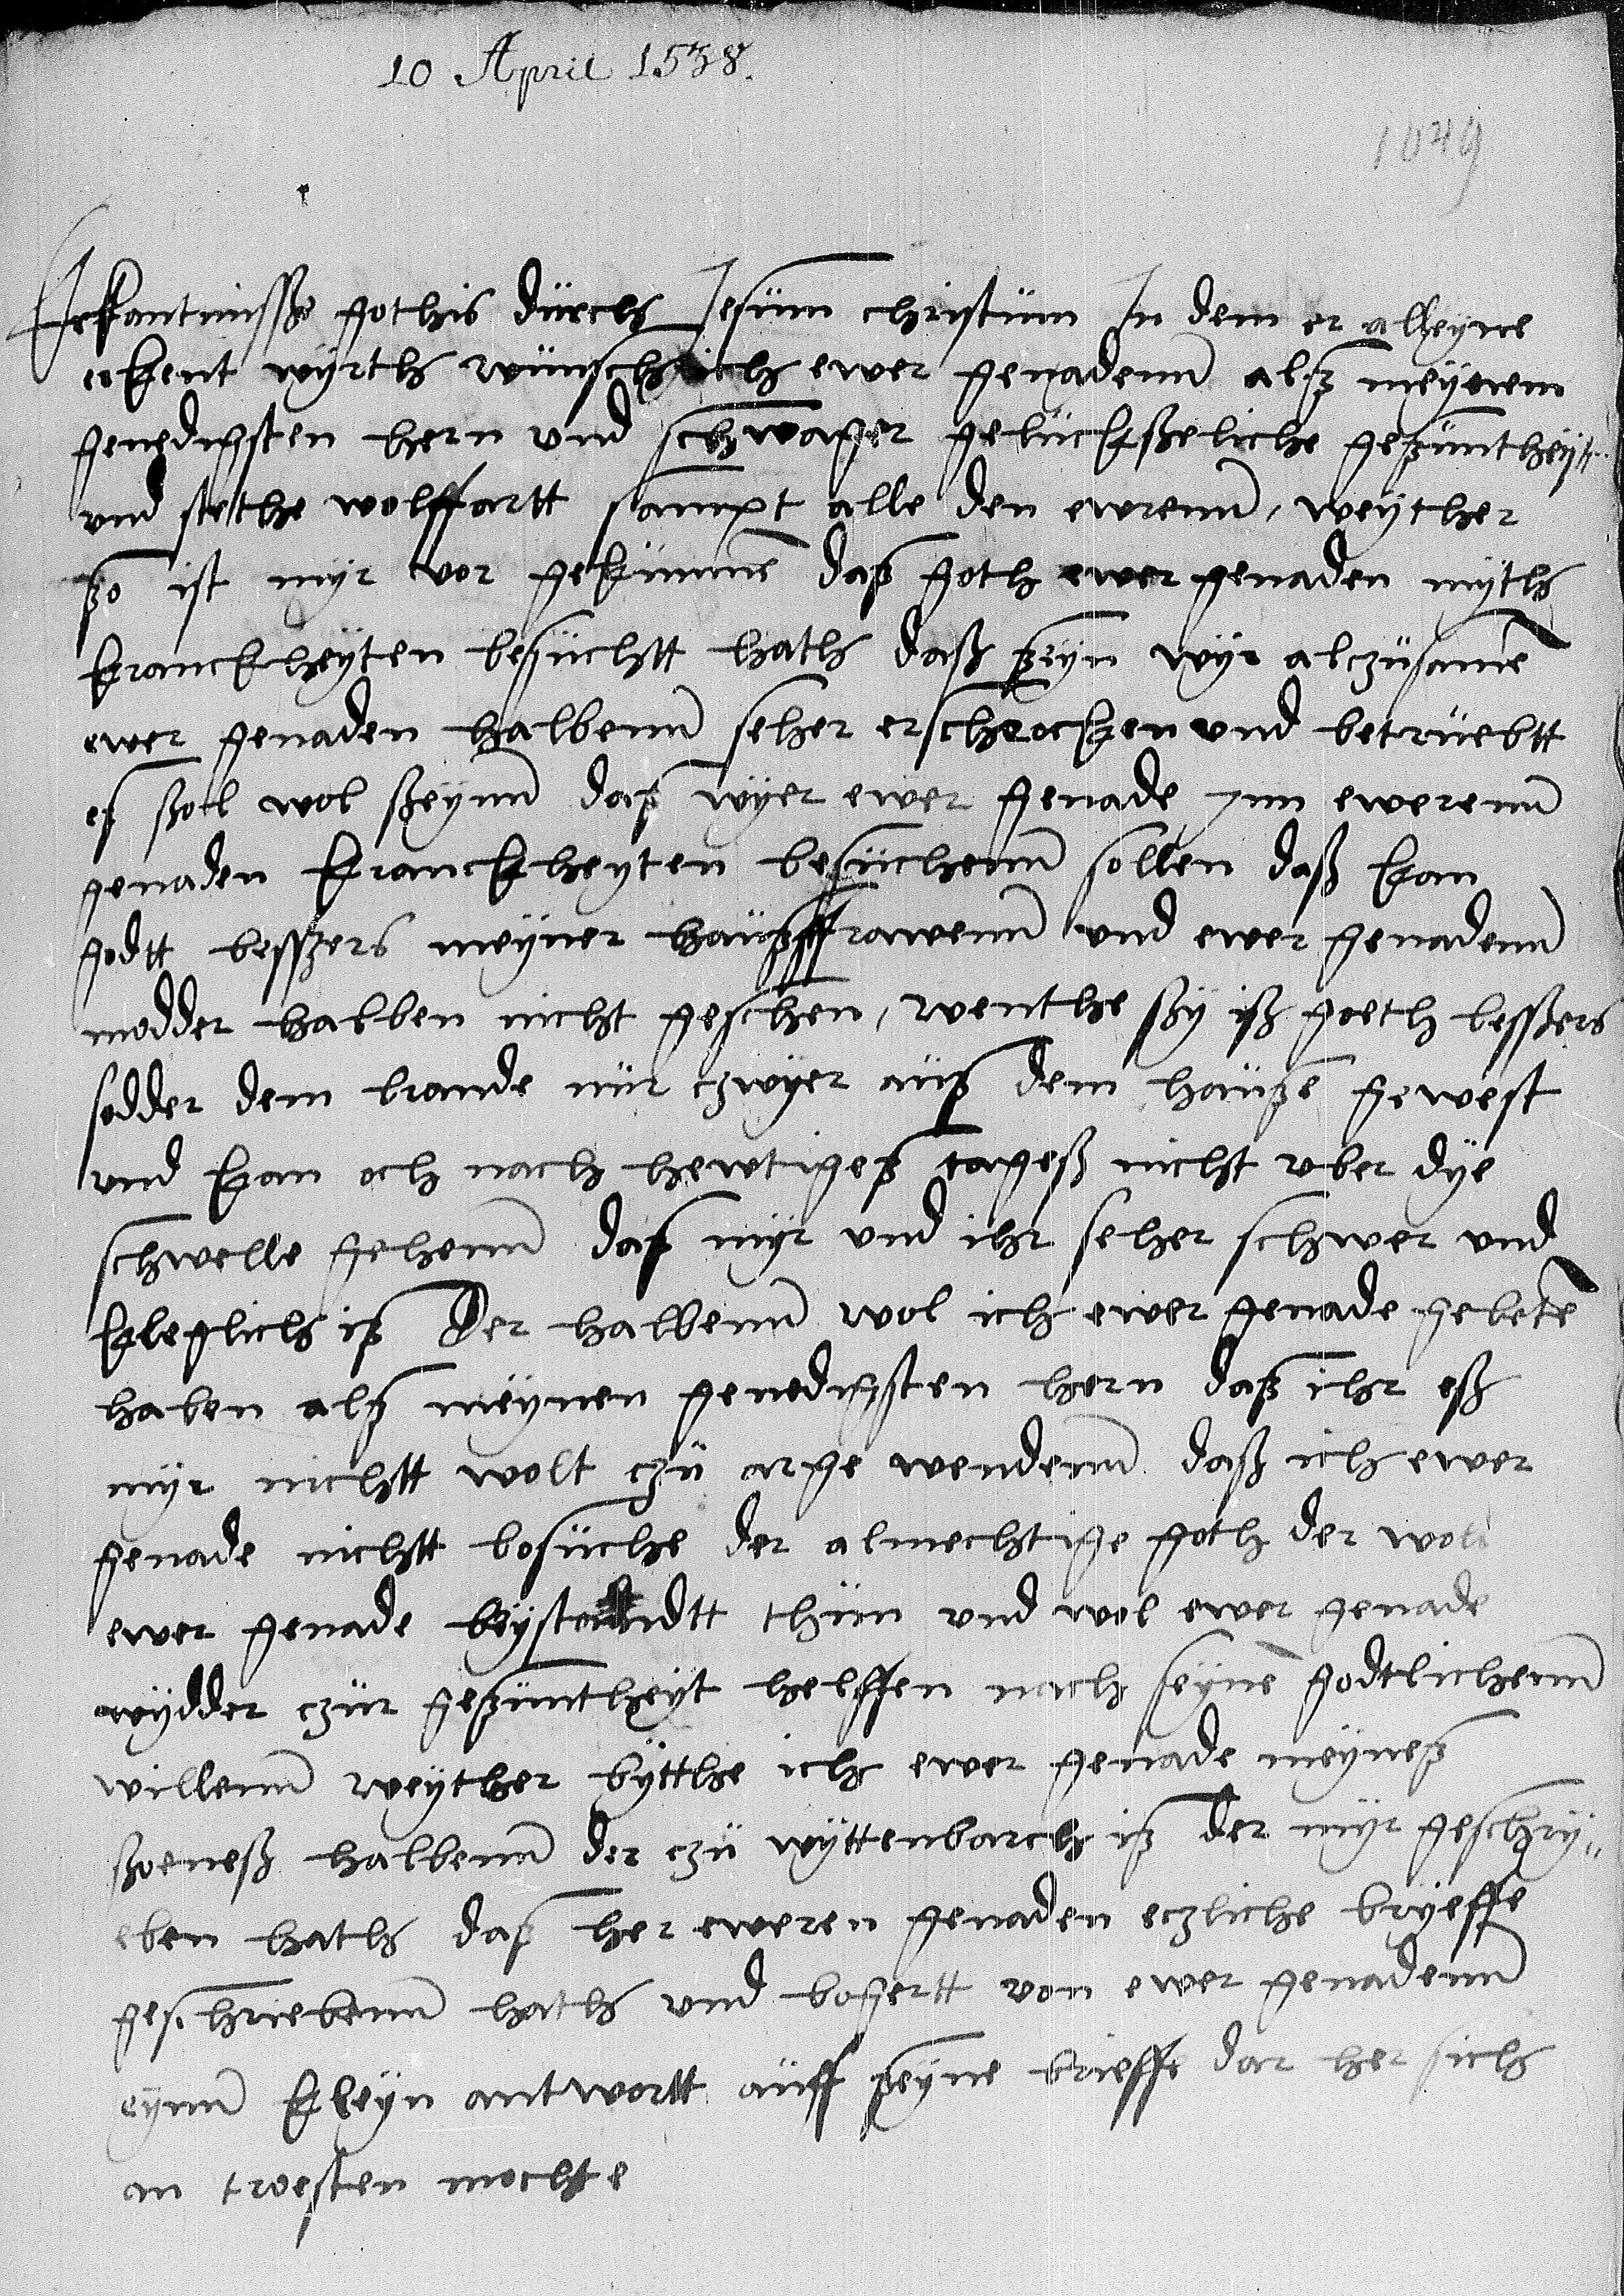 10 April 1538.
1049
Erkantnissße gothis dürch Jesüm christüm In dem er alleyne
erkent wyrth wünsch ich ewer genadenn alß meynem
genedigsten hern vnd schwager gelückßeliche geßüntheyt
vnd stethe wolffartt sampt alle den ewrenn, weyther
ßo ist myr vor gekümme daß goth ewer genaden myth
kranckheyten besüchtt hath daß seyn wyr alczüsame
ewer genaden halbenn seher erschrocken vnd betrüebtt
es ßol wol ßeynn daß wyer ewer genade ynn ewerenn
genaden kranckheyten besüchenn sollen daß kan
godtt besszers meyner haüßffrawenn vnd ewer genadenn
modder halben nicht geschen, wenthe ßy iß goeth besßers
sedder dem brande nür czwyer aüß dem haüße gewest
vnd kan och nach hewtigeß tageß nicht vber dye
schwelle gehenn daß myr vnd ihr seher schwer vnd
kleglich iß Der halbenn wol ich ewer genade gebete
haben alß meynen genedigsten hern daß ihr eß
myr nichtt wolt czü arge wendenn daß ich ewer
genade nichtt besüche der almechtige goth der wol
ewer genade beystandtt thün vnd wol ewer genade
wydder czür geßüntheyt helffen nach seyne godtlichenn
willenn weyther bytthe ich ewer genade meyneß
ßoeneß halbenn der czü wyttenbarch iß der myr geschry„
eben hath daß her eweren genaden eczliche bryeffe
geschriebenn hath vnd begertt von ewer genadenn
eynn kleyn antwortt aüff seyne brieffe dar her sich
an troesten mochte